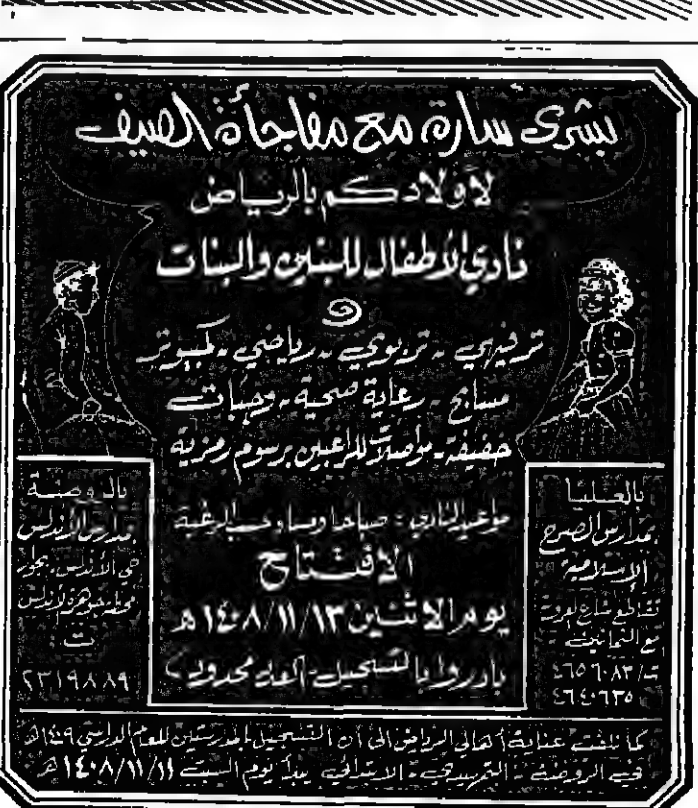 بشرى سارة مع مفاجأة الصيف
لأولادكم بالرياض
نادي الأطفال للبنين والبنات
ترفيهي - تربوي - رياضي - كمبيوتر
مسابح - رعاية صحية - وجبات
خفيفة - مواصلات للراغبين برسوم رمزية
مواعيد النادي: صباحا ومساء وحسب الرغبة
الافتتاح
يوم الاثنين ١٤٠٨/١١/١٣ هـ
بادروا بالتسجيل - العدد محدود
بالعليا
بمدارس الصرح
الإسلامية
تقاطع شارع العروبة
مع الثمانين
ت/ ٤٦٥٦٠٨٣
٤٦٤٠٦٣٥
بالروضة
بمدارس الأندلس
حي الأندلس - بجوار
محطة جوهرة الأندلس
ت:
٢٣١٩٨٨٩
كما نلفت عناية أهالي الرياض الى أن التسجيل بالمدرستين للعام الدراسي ١٤٠٩هـ
في الروضة - التمهيدي - الابتدائي يبدأ يوم السبت ١٤٠٨/١١/١١ هـ